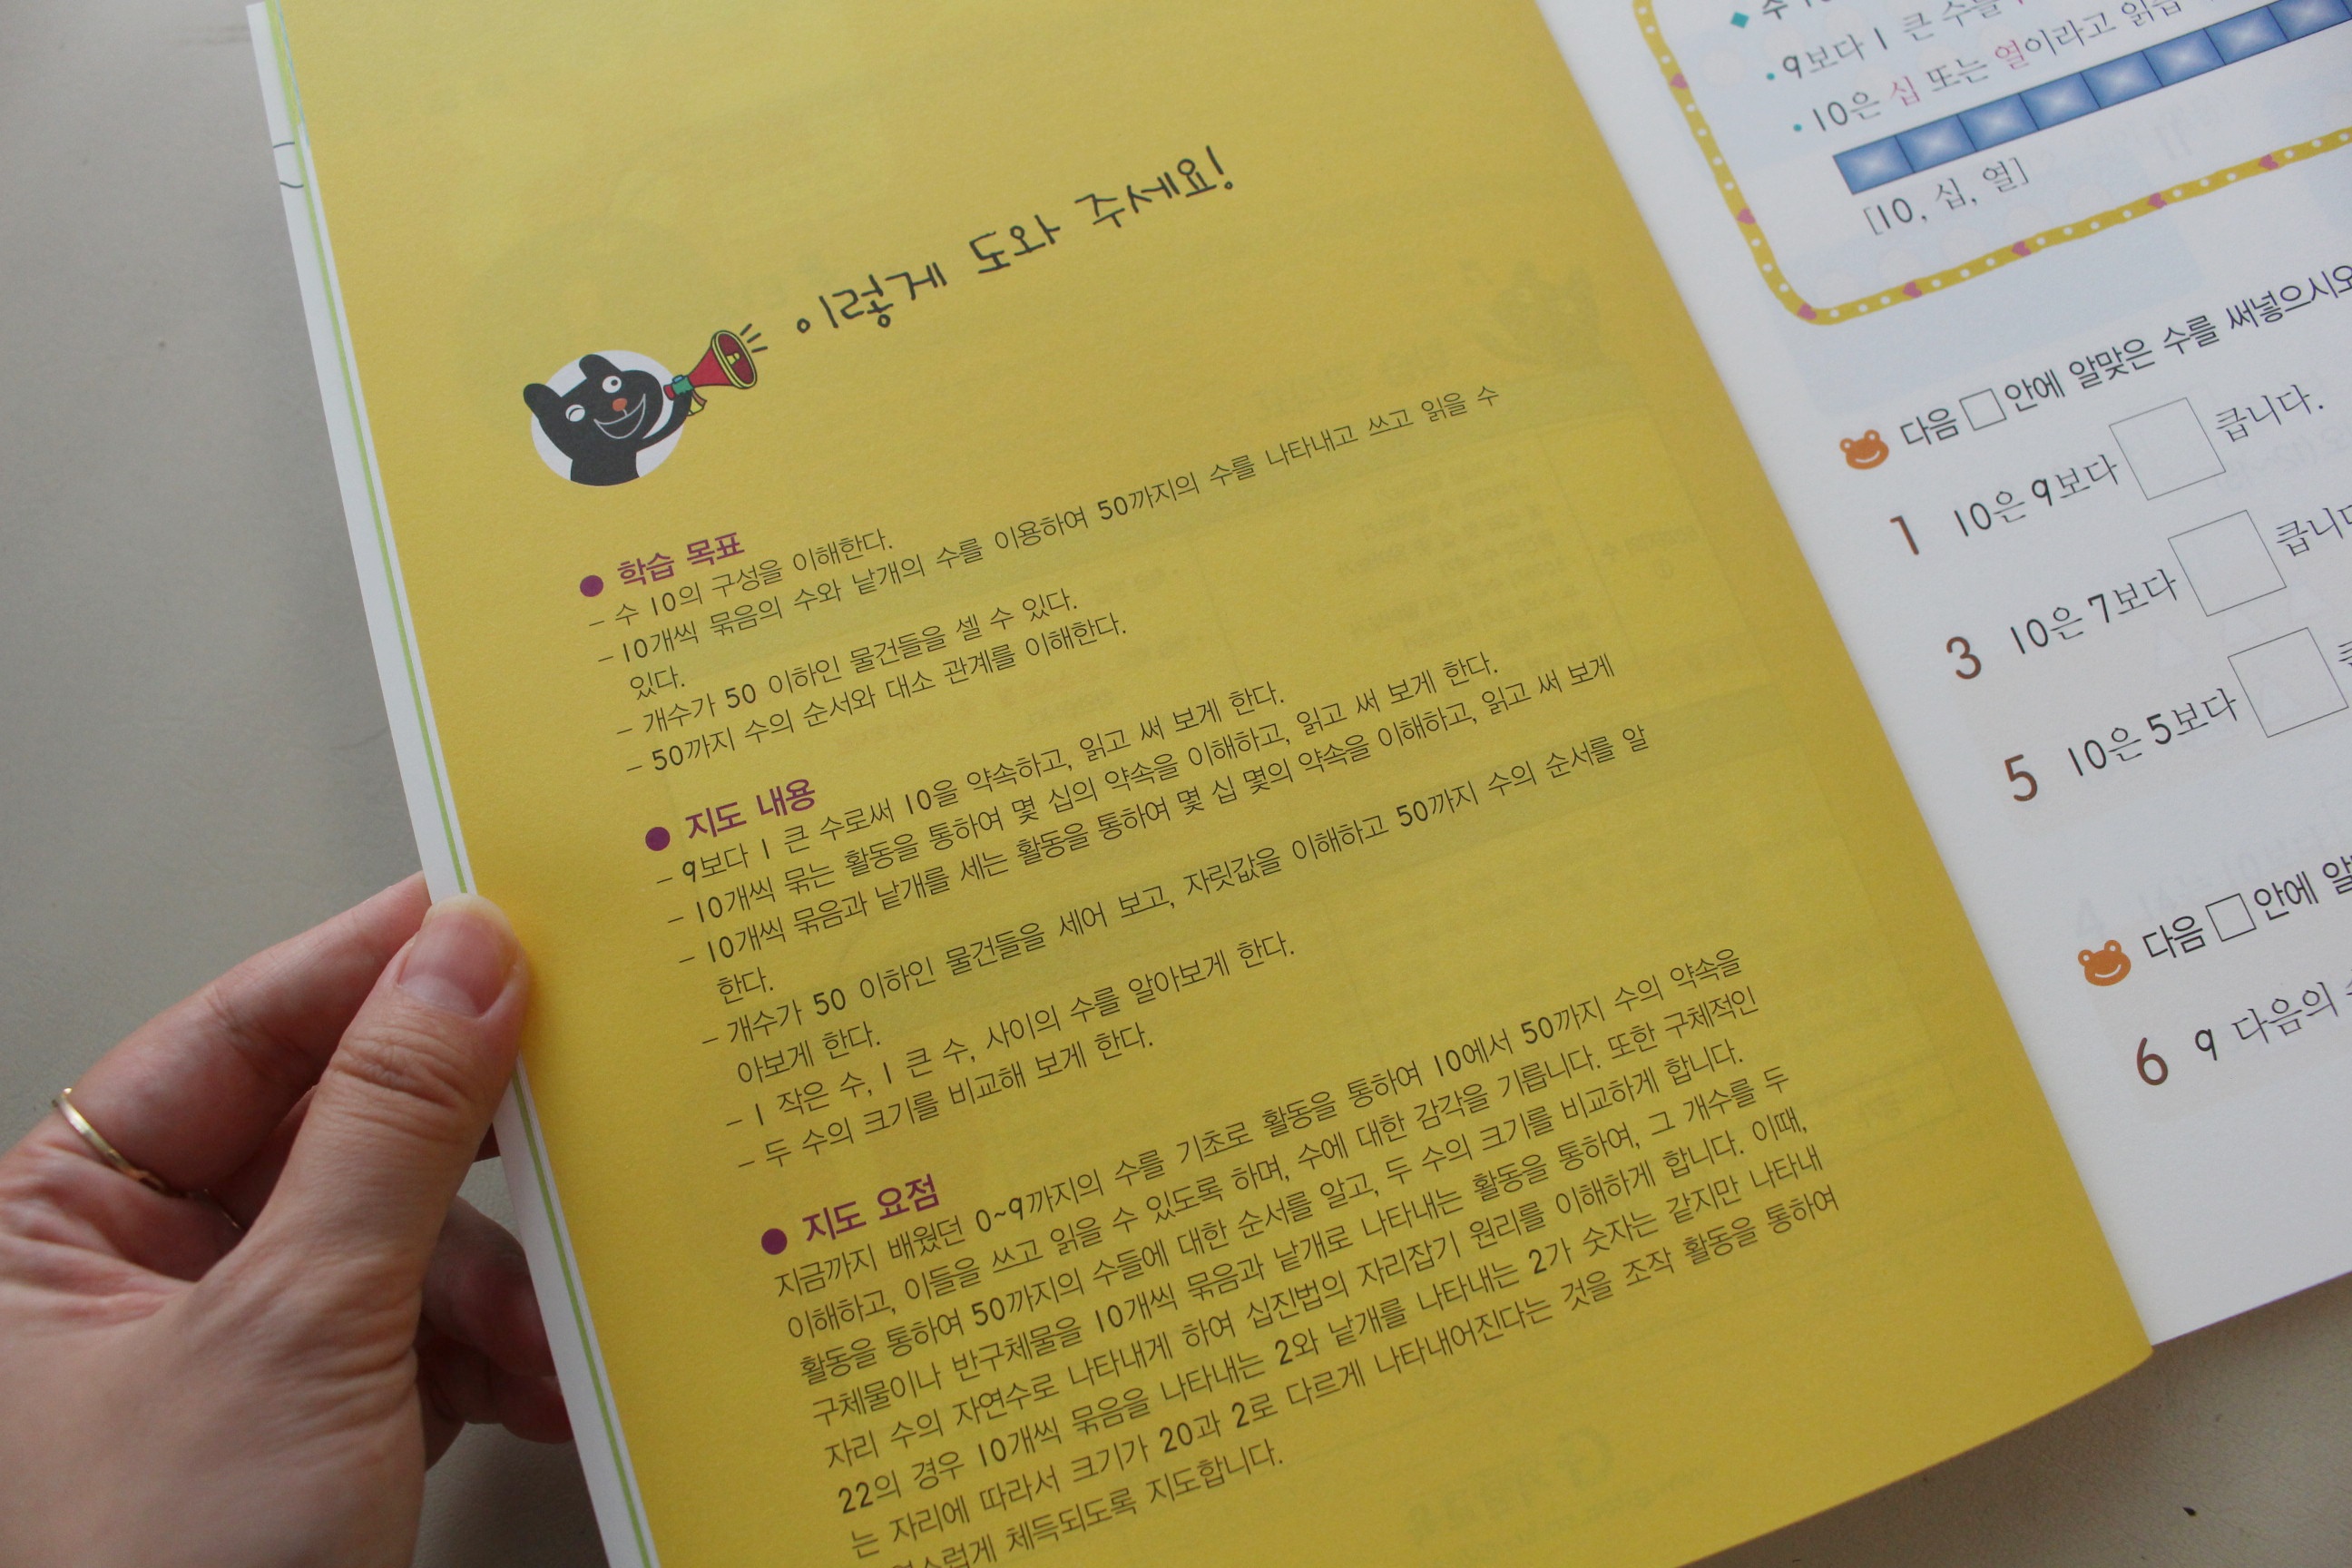 이렇게 도와 주세요!
● 학습 목표
– 수 10의 구성을 이해한다.
– 10개씩 묶음의 수와 낱개의 수를 이용하여 50까지의 수를 나타내고 쓰고 읽을 수
있다.
– 개수가 50 이하인 물건들을 셀 수 있다.
– 50까지 수의 순서와 대소 관계를 이해한다.
● 지도 내용
– 9보다 1 큰 수로써 10을 약속하고, 읽고 써 보게 한다.
– 10개씩 묶는 활동을 통하여 몇 십의 약속을 이해하고, 읽고 써 보게 한다.
– 10개씩 묶음과 낱개를 세는 활동을 통하여 몇 십 몇의 약속을 이해하고, 읽고 써 보게
한다.
– 개수가 50 이하인 물건들을 세어 보고, 자릿값을 이해하고 50까지 수의 순서를 알
아보게 한다.
– 1 작은 수, 1 큰 수, 사이의 수를 알아보게 한다.
– 두 수의 크기를 비교해 보게 한다.
● 지도 요점
지금까지 배웠던 0~9까지의 수를 기초로 활동을 통하여 10에서 50까지 수의 약속을
이해하고, 이들을 쓰고 읽을 수 있도록 하며, 수에 대한 감각을 기릅니다. 또한 구체적인
활동을 통하여 50까지의 수들에 대한 순서를 알고, 두 수의 크기를 비교하게 합니다.
구체물이나 반구체물을 10개씩 묶음과 낱개로 나타내는 활동을 통하여, 그 개수를 두
자리 수의 자연수로 나타내게 하여 십진법의 자리잡기 원리를 이해하게 합니다. 이때,
22의 경우 10개씩 묶음을 나타내는 2와 낱개를 나타내는 2가 숫자는 같지만 나타내
는 자리에 따라서 크기가 20과 2로 다르게 나타내어진다는 것을 조작 활동을 통하여
체득되도록 지도합니다.
9보다 1 큰 수를
10은 십 또는 열이라고 읽습
[10, 십, 열]
다음 □ 안에 알맞은 수를 써넣으시오
1 10은 9보다 □ 큽니다.
3 10은 7보다 □ 큽니다
5 10은 5보다 □
다음 □ 안에 알
6 9 다음의